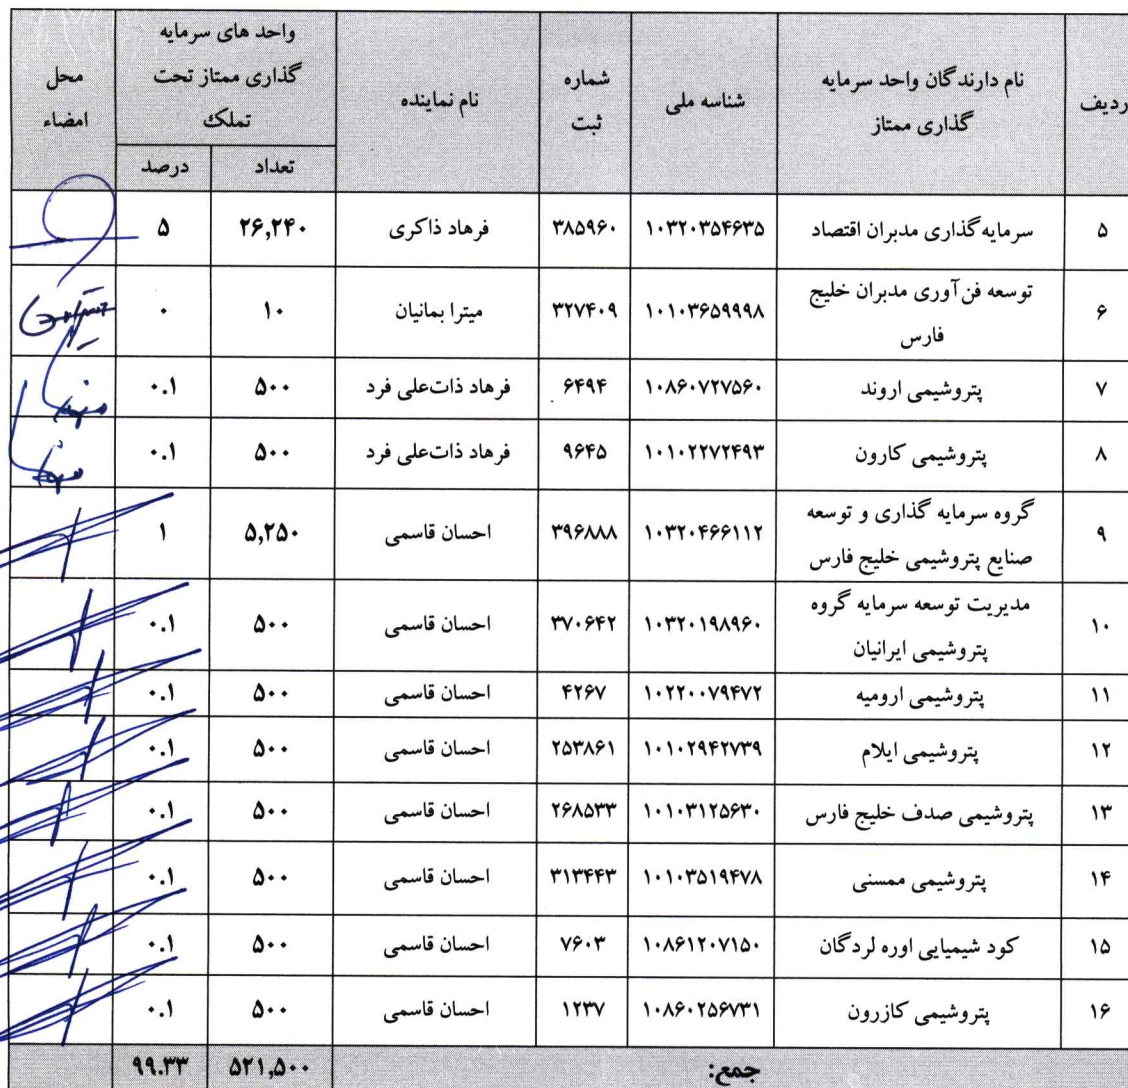 ردیف | نام دارندگان واحد سرمایه گذاری ممتاز | شناسه ملی | شماره ثبت | نام نماینده | واحد های سرمایه گذاری ممتاز تحت تملک | محل امضاء
تعداد | درصد
۵ | سرمایه‌گذاری مدبران اقتصاد | ۱۰۳۲۰۳۵۴۶۳۵ | ۳۸۵۹۶۰ | فرهاد ذاکری | ۲۶,۲۴۰ | ۵
۶ | توسعه فن‌آوری مدبران خلیج فارس | ۱۰۱۰۳۶۵۹۹۹۸ | ۳۲۷۴۰۹ | میترا بمانیان | ۱۰ | ۰
۷ | پتروشیمی اروند | ۱۰۸۶۰۷۲۷۵۶۰ | ۶۴۹۴ | فرهاد ذات‌علی فرد | ۵۰۰ | ۰.۱
۸ | پتروشیمی کارون | ۱۰۱۰۲۲۷۲۴۹۳ | ۹۶۴۵ | فرهاد ذات‌علی فرد | ۵۰۰ | ۰.۱
۹ | گروه سرمایه گذاری و توسعه صنایع پتروشیمی خلیج فارس | ۱۰۳۲۰۴۶۶۱۱۲ | ۳۹۶۸۸۸ | احسان قاسمی | ۵,۲۵۰ | ۱
۱۰ | مدیریت توسعه سرمایه گروه پتروشیمی ایرانیان | ۱۰۳۲۰۱۹۸۹۶۰ | ۳۷۰۶۴۲ | احسان قاسمی | ۵۰۰ | ۰.۱
۱۱ | پتروشیمی ارومیه | ۱۰۲۲۰۰۷۹۴۷۲ | ۴۲۶۷ | احسان قاسمی | ۵۰۰ | ۰.۱
۱۲ | پتروشیمی ایلام | ۱۰۱۰۲۹۴۲۷۳۹ | ۲۵۳۸۶۱ | احسان قاسمی | ۵۰۰ | ۰.۱
۱۳ | پتروشیمی صدف خلیج فارس | ۱۰۱۰۳۱۲۵۶۳۰ | ۲۶۸۵۳۳ | احسان قاسمی | ۵۰۰ | ۰.۱
۱۴ | پتروشیمی ممسنی | ۱۰۱۰۳۵۱۹۴۷۸ | ۳۱۳۴۴۳ | احسان قاسمی | ۵۰۰ | ۰.۱
۱۵ | کود شیمیایی اوره لردگان | ۱۰۸۶۱۲۰۷۱۵۰ | ۷۶۰۳ | احسان قاسمی | ۵۰۰ | ۰.۱
۱۶ | پتروشیمی کازرون | ۱۰۸۶۰۲۵۶۷۳۱ | ۱۲۳۷ | احسان قاسمی | ۵۰۰ | ۰.۱
جمع: | ۵۲۱,۵۰۰ | ۹۹.۳۳